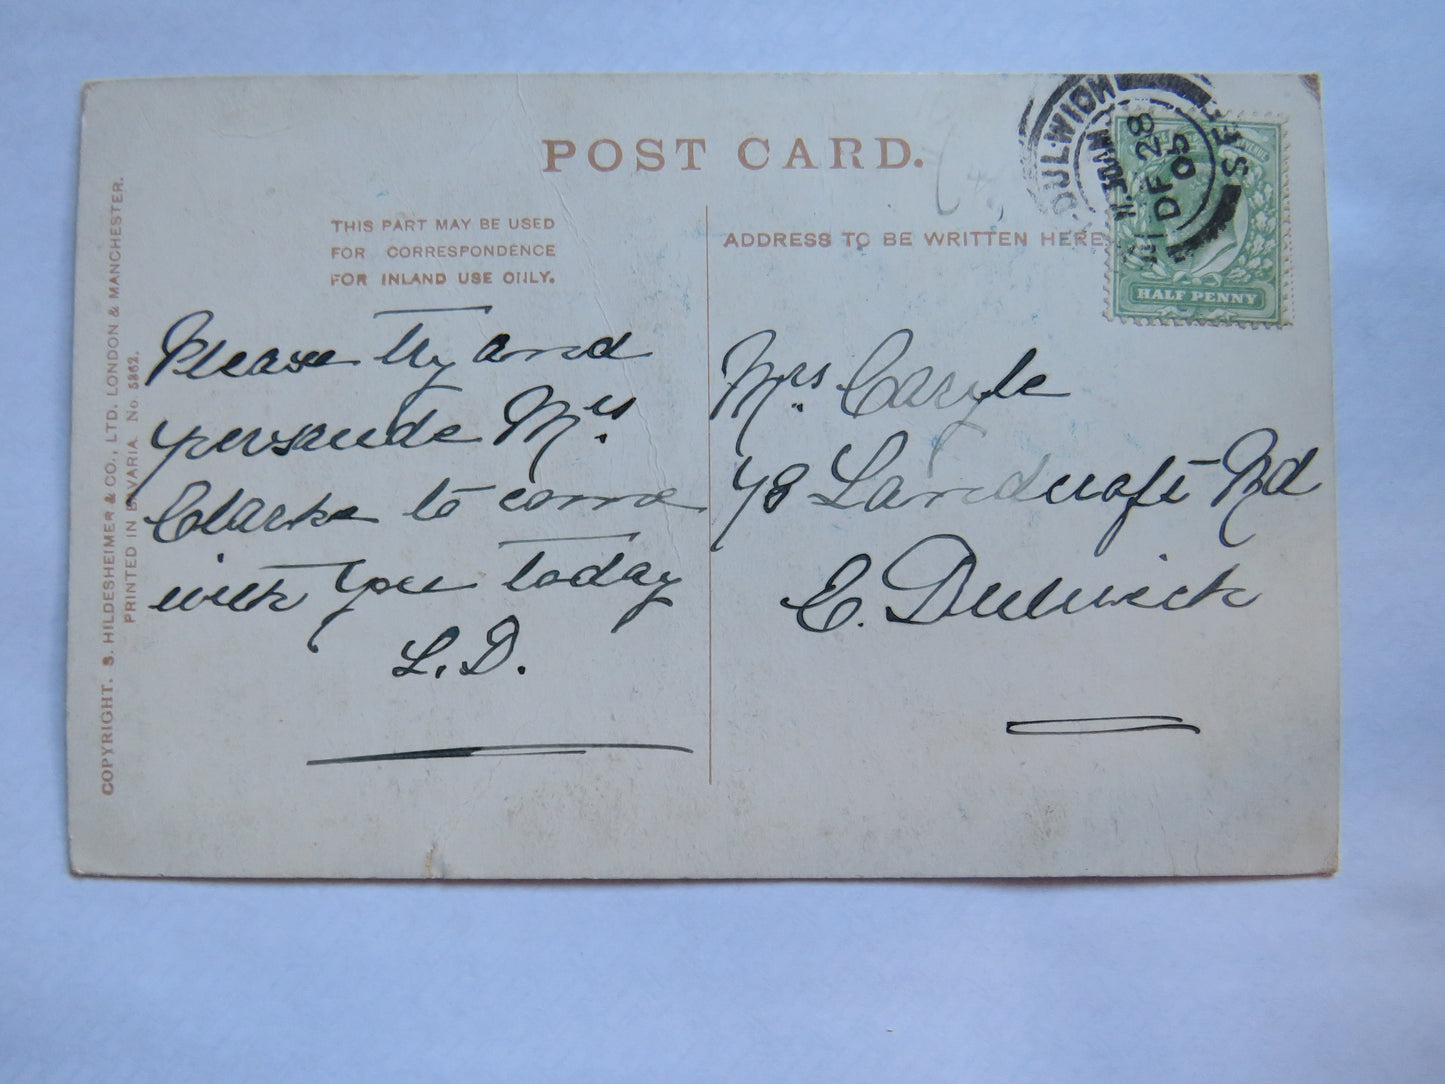 POST CARD.
THIS PART MAY BE USED
FOR CORRESPONDENCE
FOR INLAND USE ONLY.
ADDRESS TO BE WRITTEN HERE
COPYRIGHT. S. HILDESHEIMER & CO., LTD. LONDON & MANCHESTER.
PRINTED IN BAVARIA. No. 5362.
Please try and
persuade Mrs
Clarke to come
with you today
L. D.
Mrs Caryle
78 Landcroft Rd
E. Dulwich
DULWICH
S.E
11.30AM
DE 28
05
HALF PENNY